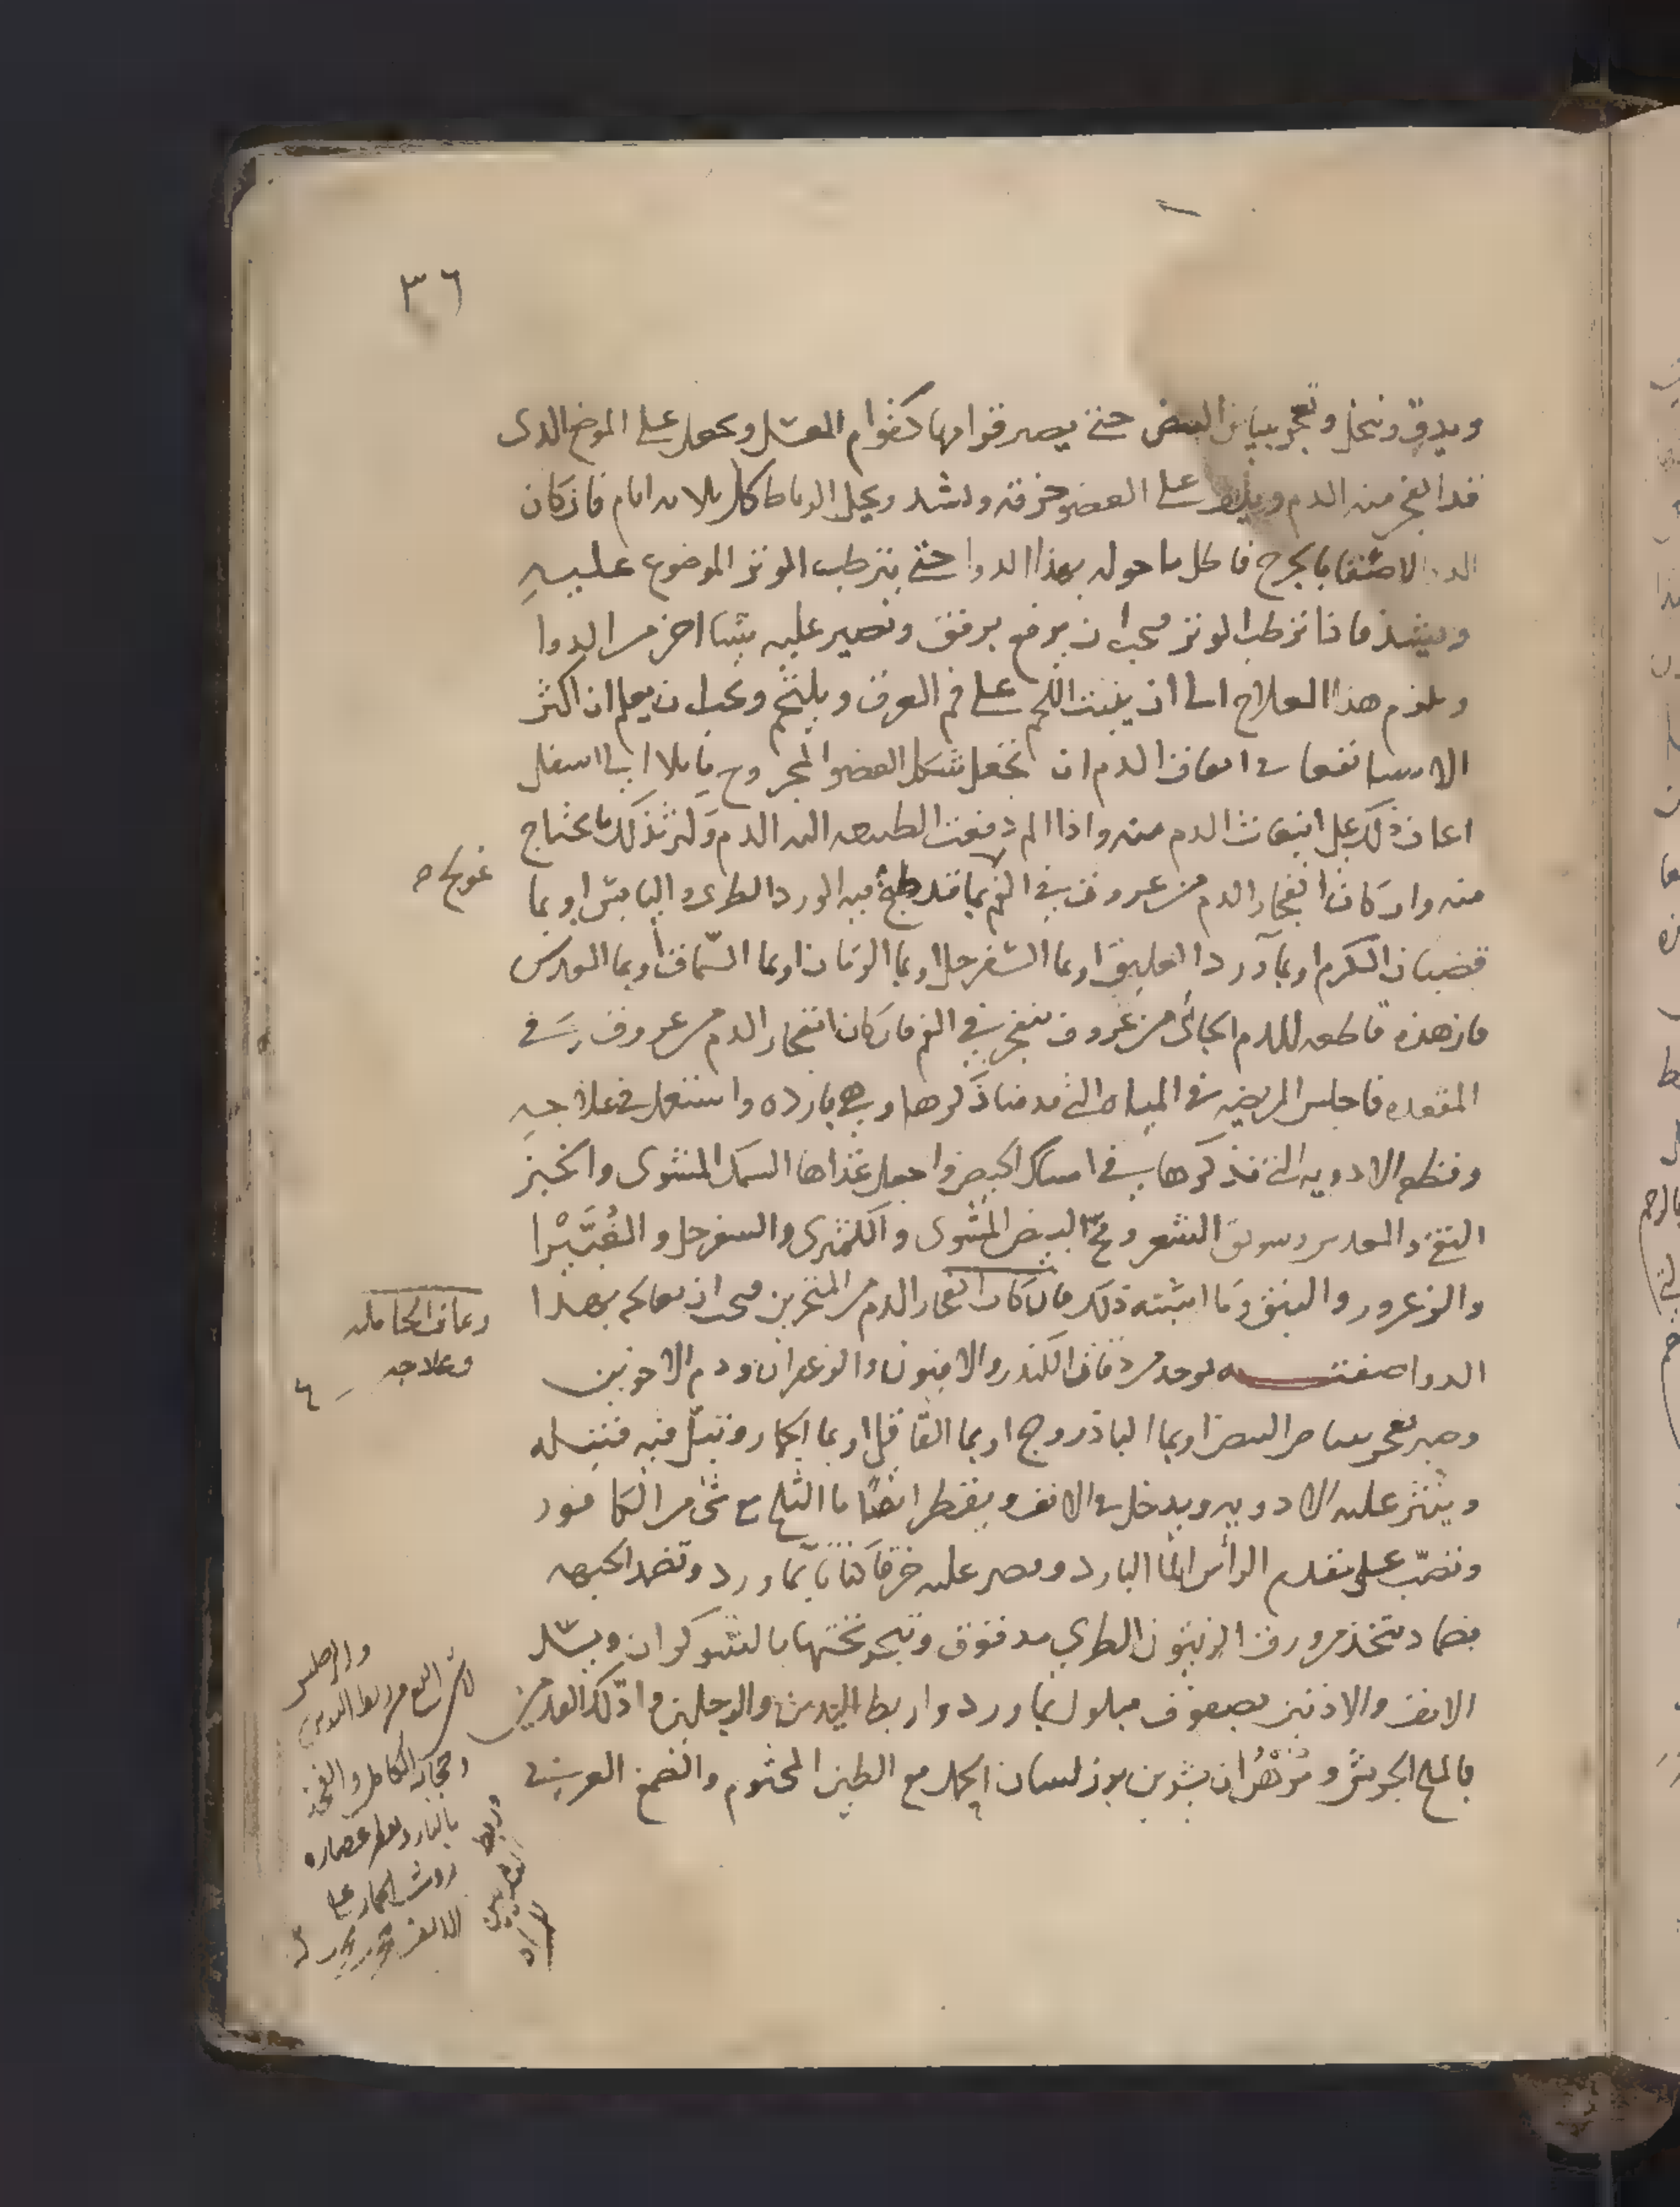 ٣٦
ويدق وينخل ويعجن ببياض البيض حتى يصير قوامها كقوام العسل ويجعل على الموضع الذى
قد انفجر منه الدم ويلف على العضو خرقة ويشد ويحل الرباط كل ثلاثة ايام فان كان
الدوا لاصقا بالجرح فاطل ما حوله بهذا الدوا حتى يترطب الوبر الموضوع عليه
ويشد فاذا ترطب الوبر فيجب ان يرفع برفق ويصير عليه شيئا اخر من الدوا
ويلزم هذا العلاج الى ان ينبت اللحم على فم العرق ويلتحم ويجب ان يعلم ان اكثر
الاشيا نفعا فى انبعاث الدم ان تجعل شكل العضو المجروح مايلا الى اسفل
اعان ذلك على انبعاث الدم منه واذا الم دفعت الطبيعه اليه الدم وليكن ذلك ما يحتاج
منه وان كان انفجار الدم من عروق فى الفم بما قد طبخ فيه الورد الطرى واليابس او بما
قضبان الكرم او بما ورد العليق او بما السفرجل او بما الرمان او بما السماق او بما العدس
فان هذه قاطعه للدم الجائى من عروق تنفجر فى الفم فان كان انفجار الدم من عروق فى
المقعده فاجلس المريض فى المياه التى قدمنا ذكرها وهى بارده واستعمل فى علاجه
وقطع الادويه التى نذكرها فى امساك الحيض واجعل غذاها السمك المشوى والخبز
النقى والعدس وسويق الشعير ومح البيض المشوى والكمثرى والسفرجل والغبيرا
والزعرور والنبق وما اشبه ذلك فان كان انفجار الدم من المنخرين فيجب ان تعالجه بهذا
الدوا صفته يوخذ من دقاق الكندر والافيون والزعفران ودم الاخوين
وصبر يعجن ببياض البيض او بما الباذروج او بما القاقلى او بما الحمار وتبل فيه فتيله
وينثر عليه الادويه ويدخل فى الانف ويقطر ايضا ما الثلج مع شى من الكافور
وتصب على مقدم الراس الما البارد ويصير عليه خرقا كتانا بما ورد وتضمد الجبهه
بضماد متخذ من ورق الزيتون الطرى مدقوق وتبخر تحتها بالشوكران ويسد
الانف والاذنين بصوف مبلول بما ورد واربط اليدين والرجلين وادلك القدمين
بالملح الجريش ومره ان يشرب بزر لسان الحمل مع الطين المختوم والصمغ العربى فى
عولج ص
رعاف الحامله
وعلاجه
والرجلين
وحجامه الكاهل والفخذ
بالنار ويقطر عصاره
روث الحمار على